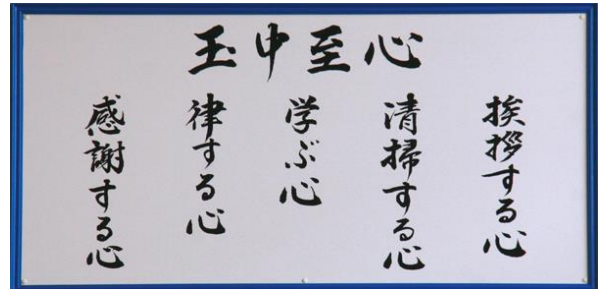 玉中至心
挨拶する心
清掃する心
学ぶ心
律する心
感謝する心